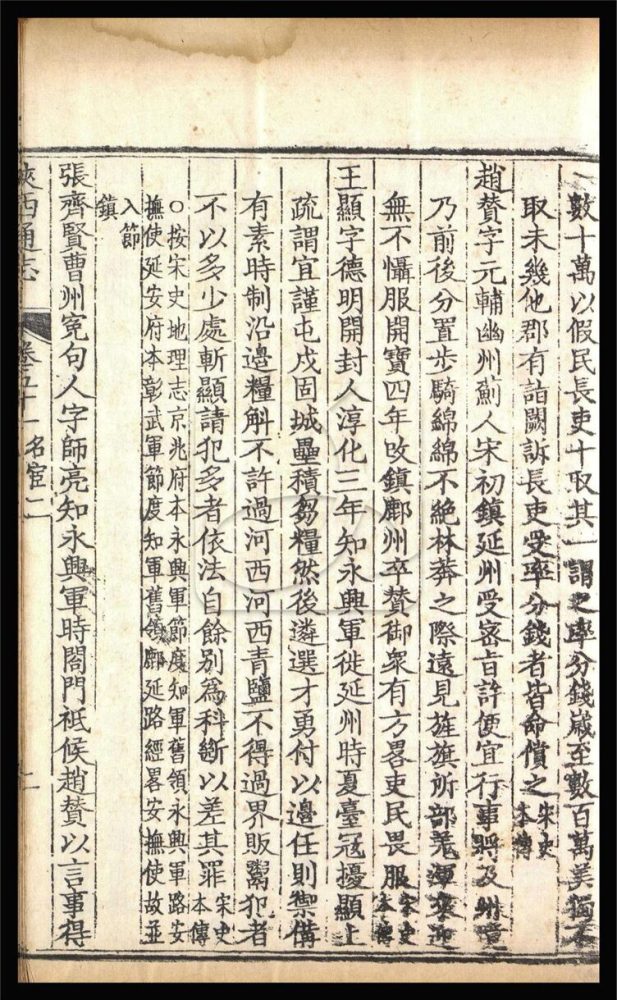 數十萬以假民長吏十取其一謂之率分錢歲至數百萬美獨不
取未幾他郡有詣闕訴長吏受率分錢者皆命償之宋史本傳
趙贊字元輔幽州薊人宋初鎮延州受密旨許便宜行事將及州境
乃前後分置步騎綿綿不絶林莽之際遠見旌旗所部羌渾來迎
無不懾服開寶四年改鎮鄜州卒贊御衆有方畧吏民畏服宋史本傳
王顯字德明開封人淳化三年知永興軍徙延州時夏臺寇擾顯上
疏謂宜謹屯戍固城壘積芻糧然後遴選才勇付以邊任則禦備
有素時制沿邊糧斛不許過河西河西青鹽不得過界販鬻犯者
不以多少處斬顯請犯多者依法自餘別爲科斷以差其罪宋史本傳
○按宋史地理志京兆府本永興軍節度知軍舊領永興軍路安
撫使延安府本彰武軍節度知軍舊領鄜延路經畧安撫使故並
入節
鎮
張齊賢曹州冤句人字師亮知永興軍時閤門祇候趙贊以言事得
陝西通志 卷五十一 名宦二